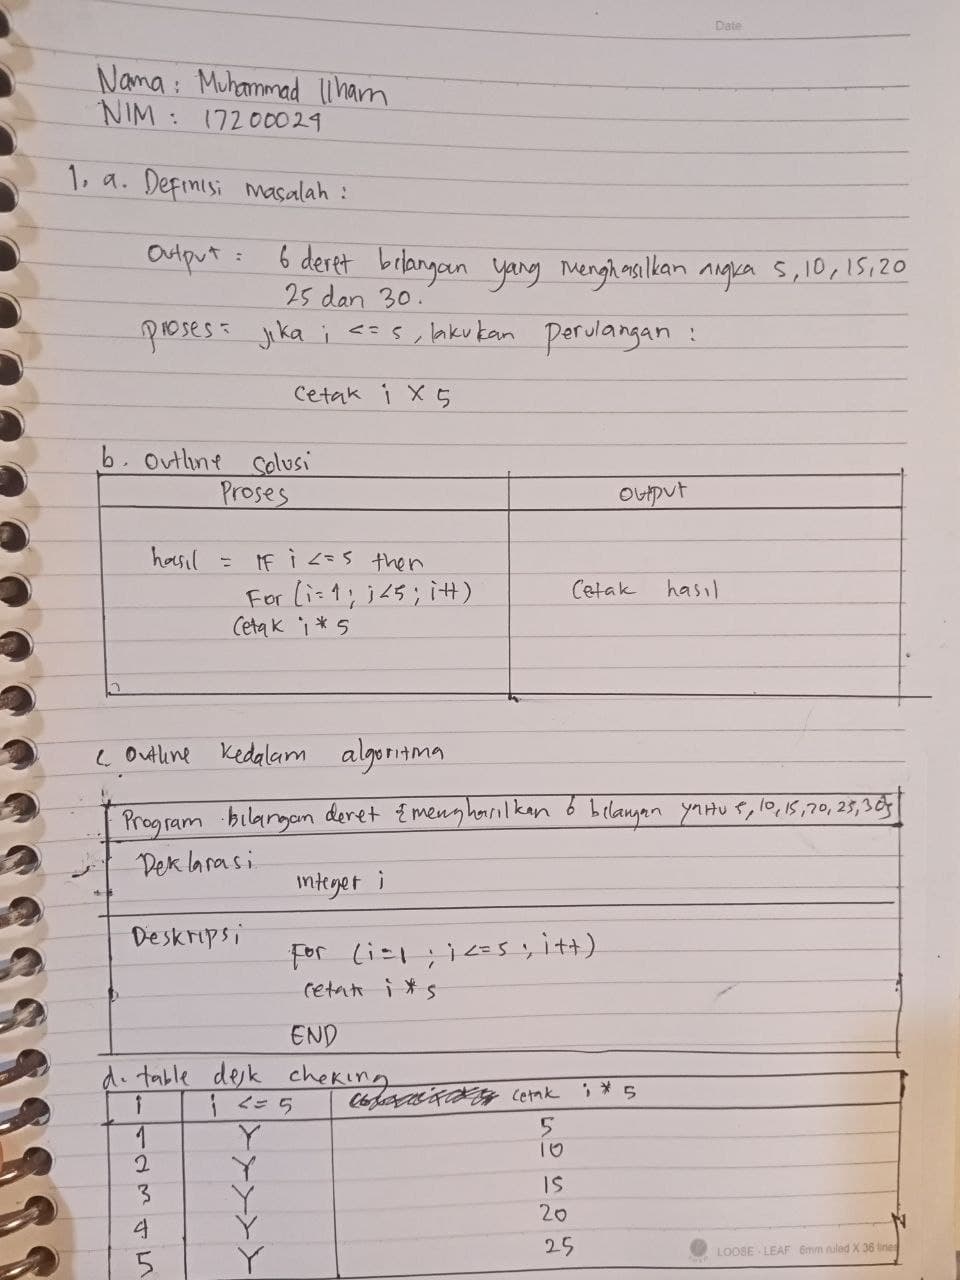 Date
Nama : Muhammad Ilham
NIM : 17200024
1. a. Definisi Masalah :
Output : 6 deret bilangan yang menghasilkan angka 5, 10, 15, 20
25 dan 30.
proses = jika i <= 5, lakukan perulangan :
Cetak i x 5
b. Outline Solusi
Proses Output
hasil = IF i <= 5 then
For (i=1; i<5; i++) Cetak hasil
Cetak i * 5
c. Outline kedalam algoritma
Program bilangan deret {menghasilkan 6 bilangan yaitu 5, 10, 15, 20, 25, 30}
Deklarasi
integer i
Deskripsi
For (i=1 ; i<=5 ; i++)
cetak i * 5
END
d. table desk cheking
i i <= 5 cetak i * 5
1 Y 5
2 Y 10
3 Y 15
4 Y 20
5 Y 25
LOOSE - LEAF 6mm ruled X 36 lines